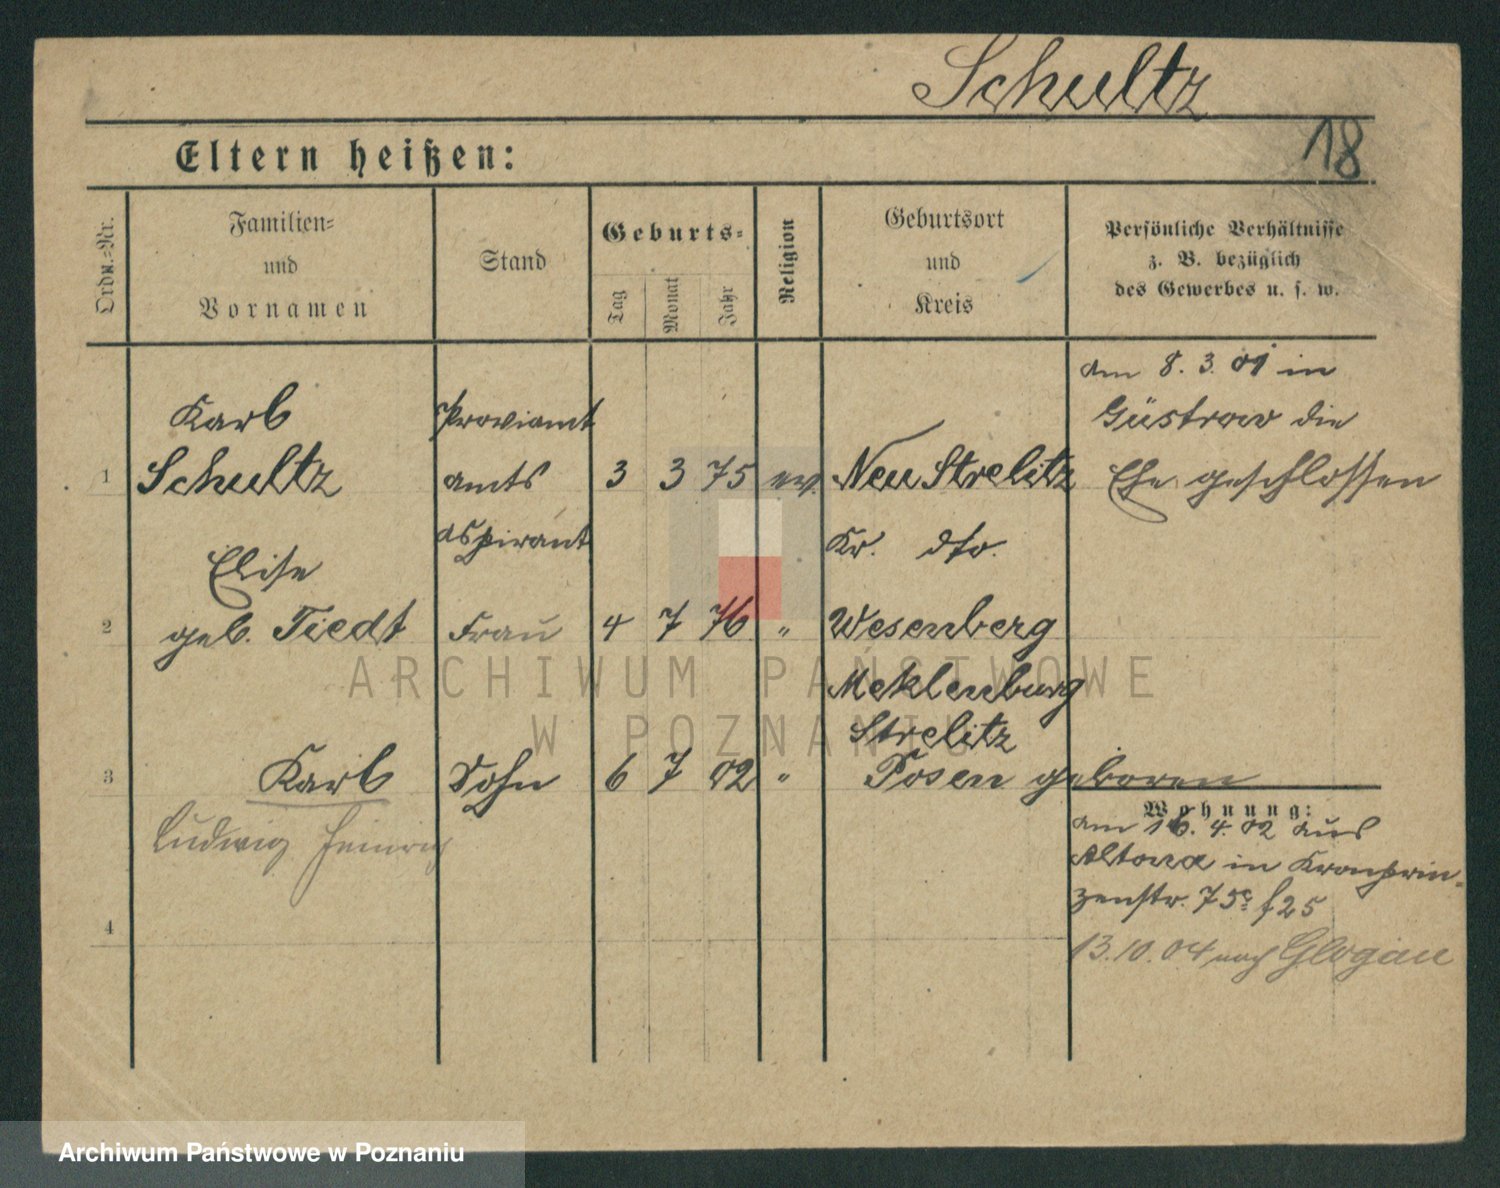 Schultz
18
Eltern heißen:
Ordn.-Nr.
Familien-
und
Vornamen
Stand
Geburts-
Tag
Monat
Jahr
Religion
Geburtsort
und
Kreis
Persönliche Verhältnisse
z. B. bezüglich
des Gewerbes u. s. w.
am 8. 3. 01 in
Güstrow die
Ehe geschlossen
1
Karl
Schultz
Proviant
amts
aspirant
3 3 75 ev.
Neu Strelitz
Kr. dto.
2
Elise
geb. Tiedt
Frau
4 7 76 "
Wesenberg
Meklenburg
Strelitz
3
Karl
Ludwig Heinrich
Sohn
6 7 02 "
Posen geboren
Wohnung:
am 16. 4. 02 aus
Altona in Kronprin-
zenstr. 75c f 25
13.10.04 nach Glogau
4
ARCHIWUM PAŃSTWOWE
W POZNANIU
Archiwum Państwowe w Poznaniu